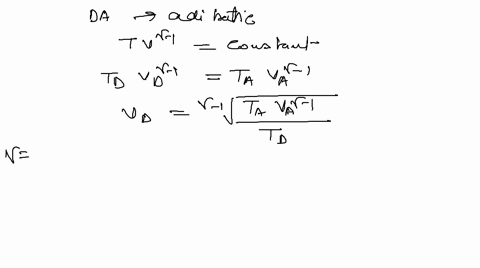 DA → adibatic
TV^{γ-1} = constant
T_D V_D^{γ-1} = T_A V_A^{γ-1}
V_D = \sqrt[γ-1]{\frac{T_A V_A^{γ-1}}{T_D}}
γ=